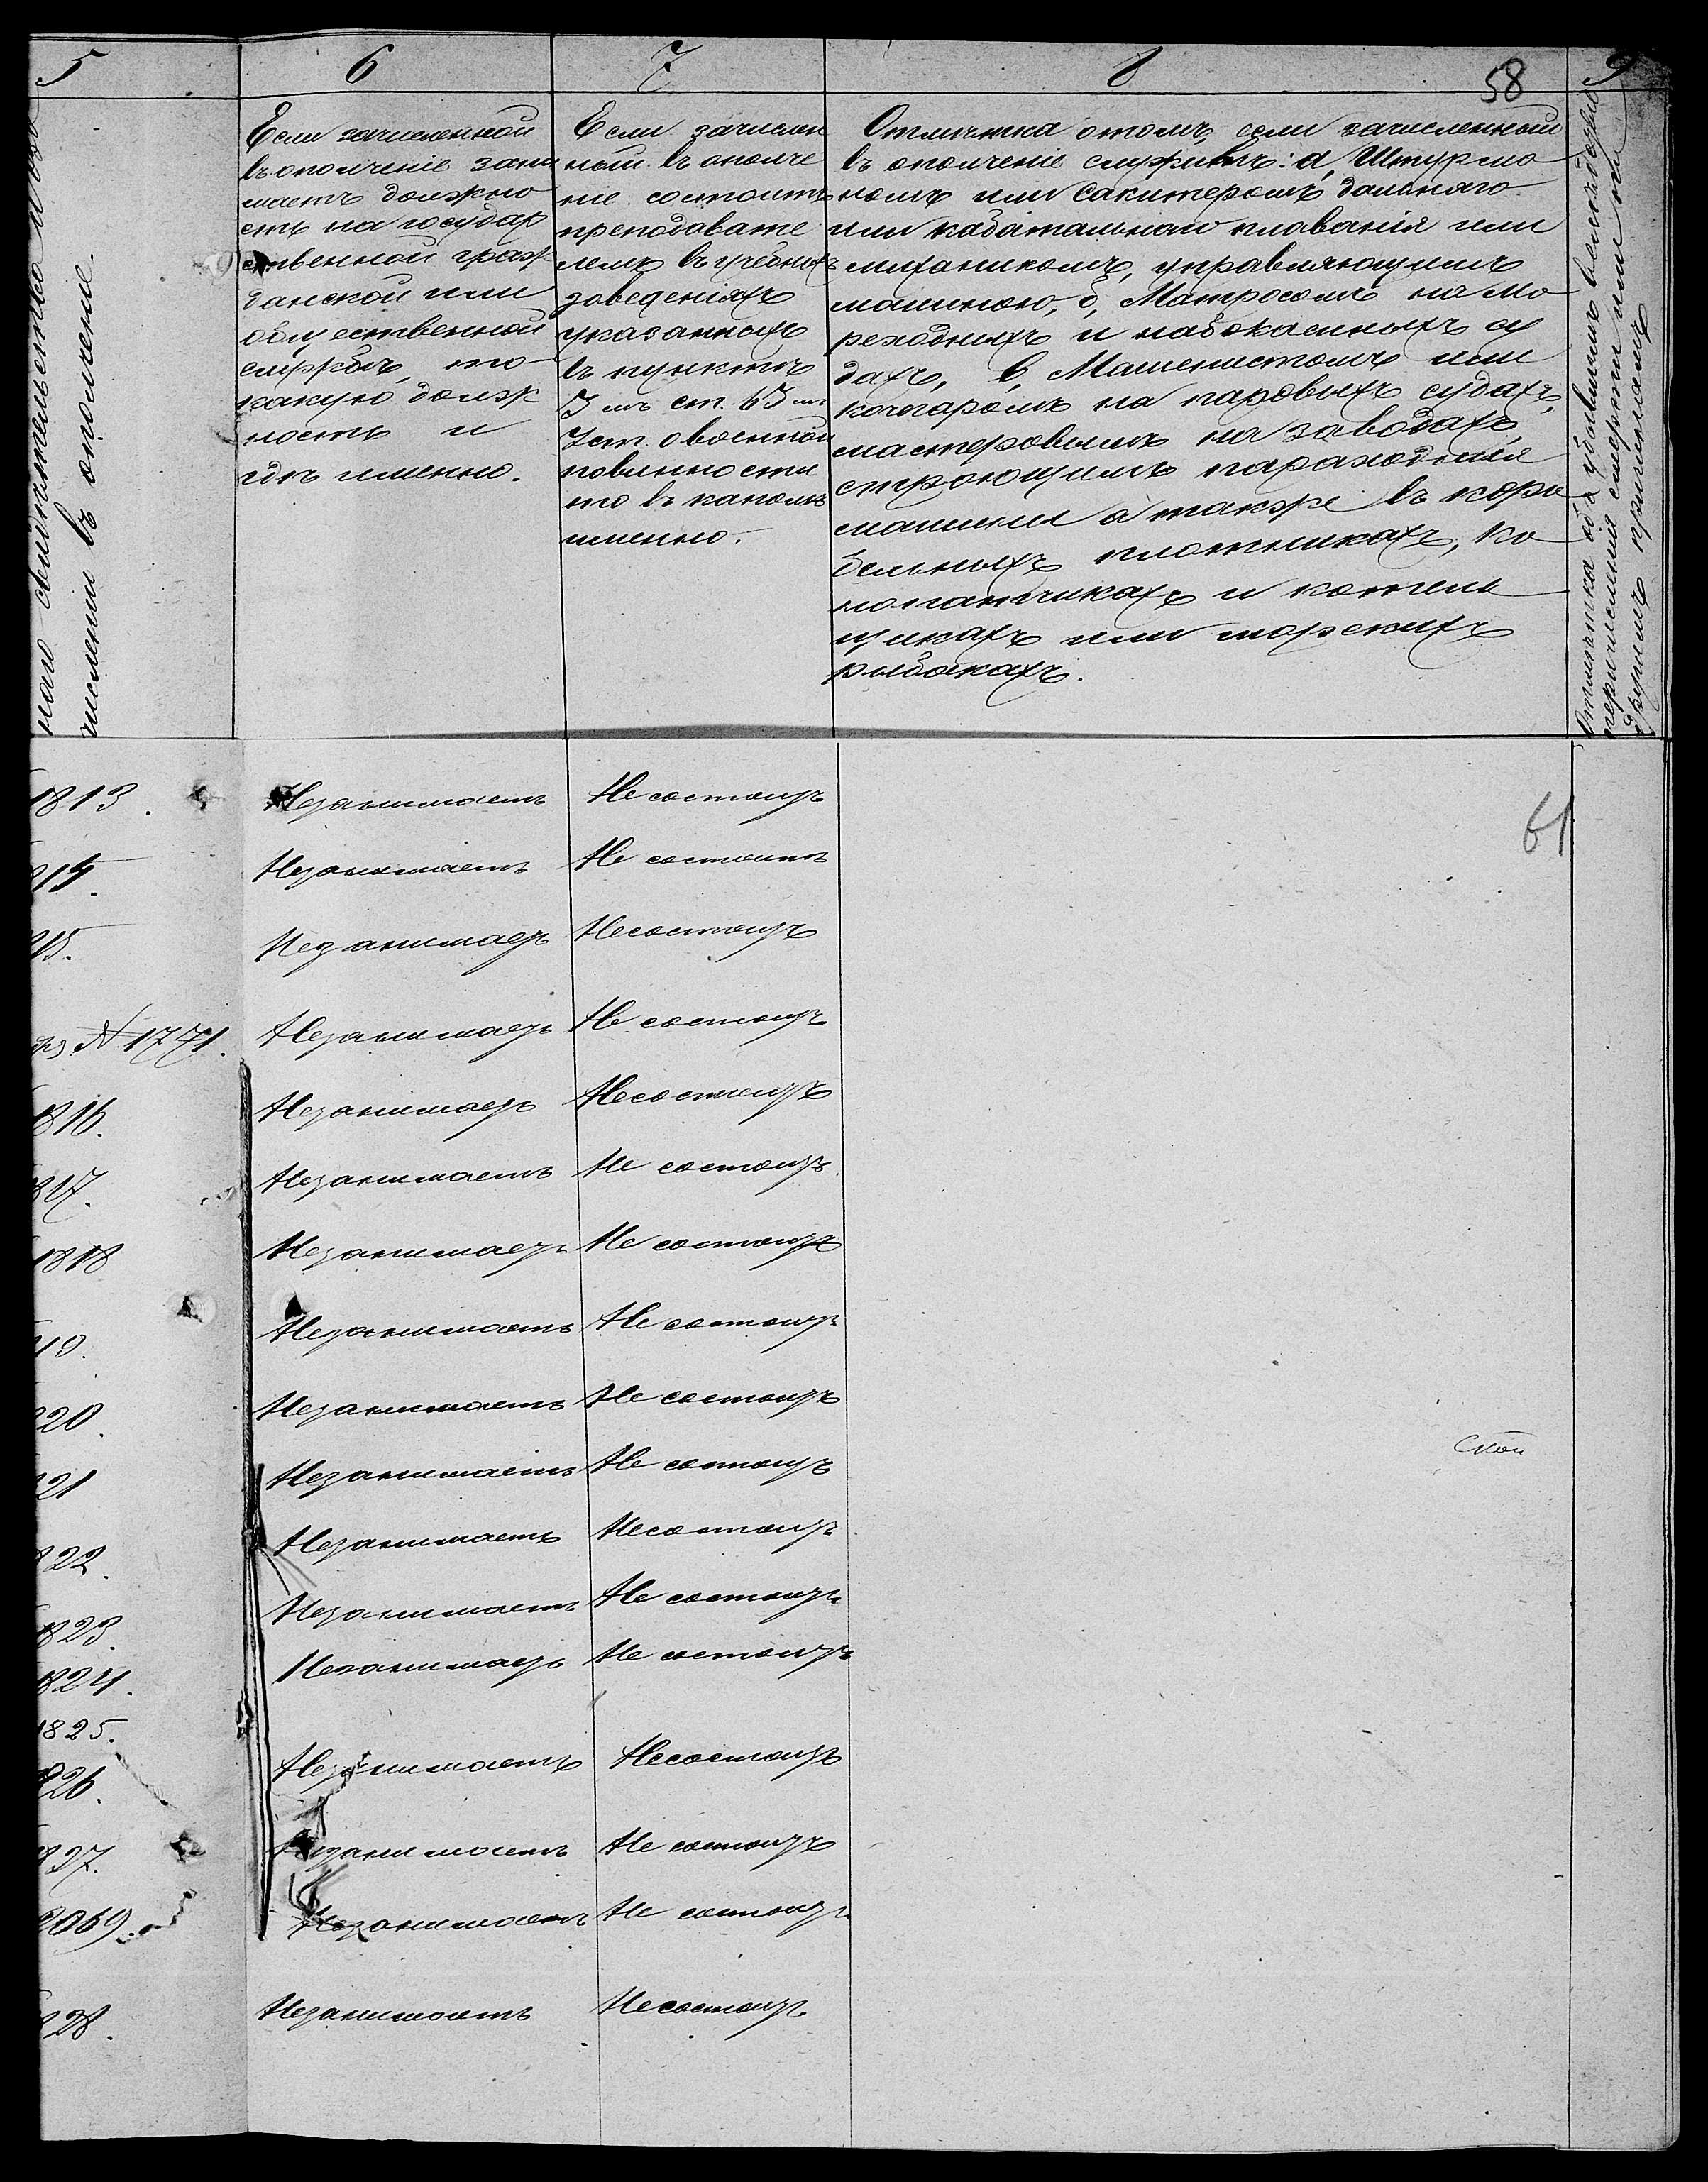 5 6 7 8 58 9
наго свидетельства
числени въ ополчение.
Если зачисленной
въ ополченіе зани
маетъ должно
сть на государ
ственной граж
данской или
общественной
службѣ, то
какую долж
ность и
гдѣ именно.
Если зачислен
ный въ ополче
ніе состоитъ
преподавате
лемъ въ учебныхъ
заведеніяхъ
указанныхъ
въ пунктѣ
3 мъ ст. 63 мъ
Уст. о военной
повинности
то въ какомъ
именно.
Отмѣтка отомъ, если зачисленный
въ ополченіе служитъ: а, Штурма
номъ или дальняго
или плаванія или
механикомъ, управляющимъ
машиною, б, Матросомъ на мо
реходныхъ и су
дахъ, в, Машенистомъ или
кочегаромъ на паровыхъ судахъ,
мастеровымъ на заводахъ
строющимъ
машины а также въ кора
бельныхъ плотникахъ, ко
нопатчикахъ и котель
щикахъ или морскихъ
рыбакахъ.
Отмѣтка объ убывшимъ
перечисленія смерти или по
другимъ причинамъ
1813. Незанимаетъ Не состоитъ
61
814. Незанимаетъ Не состоитъ
815. Незанимаетъ Несостоитъ
№ 1771. Незанимаетъ Не состоитъ
1816. Незанимаетъ Несостоитъ
817. Незанимаетъ Не состоитъ
1818 Незанимаетъ Не состоитъ
19. Незанимаетъ Не состоитъ
820. Незанимаетъ Не состоитъ
821 Незанимаетъ Не состоитъ
822. Незанимаетъ Несостоитъ
1823. Незанимаетъ Не состоитъ
1824. Незанимаетъ Не состоитъ
1825.
826. Незанимаетъ Несостоитъ
827. Незанимаетъ Не состоитъ
2069. Незанимаетъ Не состоитъ
828. Незанимаетъ Несостоитъ